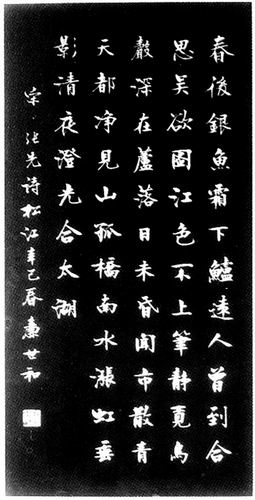 春後銀魚霜下鱸遠人曾到合
思吴欲圖江色不上筆静覓鳥
聲深在蘆落日未昏聞市散青
天都净見山孤橋南水漲虹垂
影清夜澄光合太湖
宋·张先诗松江辛巳春蕙世和